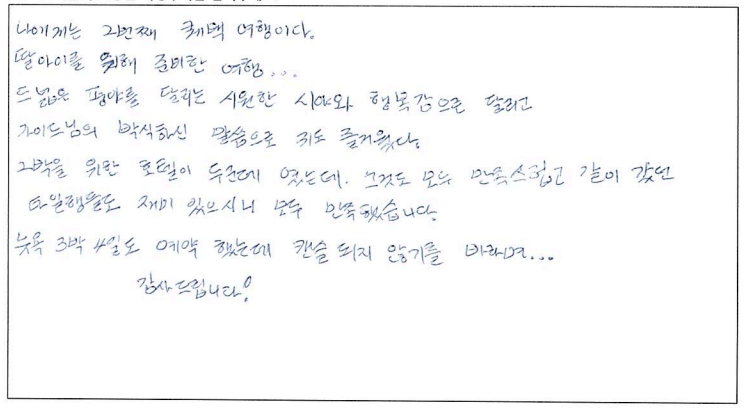 나에게는 2번째 퀘백 여행이다.
딸아이를 위해 준비한 여행...
드넓은 평야를 달리는 시원한 시야와 행복감으로 달리고
가이드님의 박식하신 말씀으로 귀도 즐거웠다.
2박을 위한 호텔이 두군데 였는데. 그것도 모두 만족스럽고 같이 갔던
타일행들도 재미 있으시니 모두 만족했습니다.
뉴욕 3박 4일도 예약 했는데 캔슬 되지 않기를 바라며...
감사드립니다!